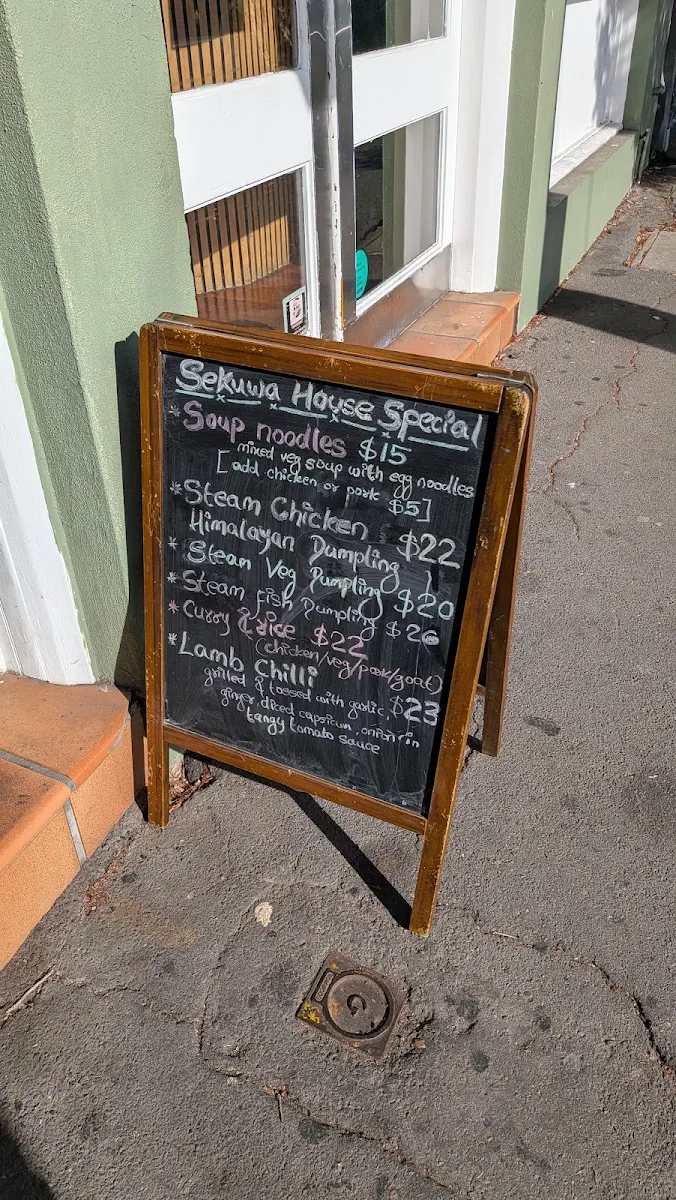 Sekuwa House Special
* Soup noodles $15
mixed veg soup with egg noodles
[add chicken or pork $5]
* Steam Chicken
Himalayan Dumpling $22
* Steam Veg Dumpling $20
* Steam fish Dumpling $26
* Curry & rice $22
(chicken/veg/pork/goat)
* Lamb Chilli
grilled & tossed with garlic, $23
ginger, diced capsicum, onion in
tangy tomato sauce
G